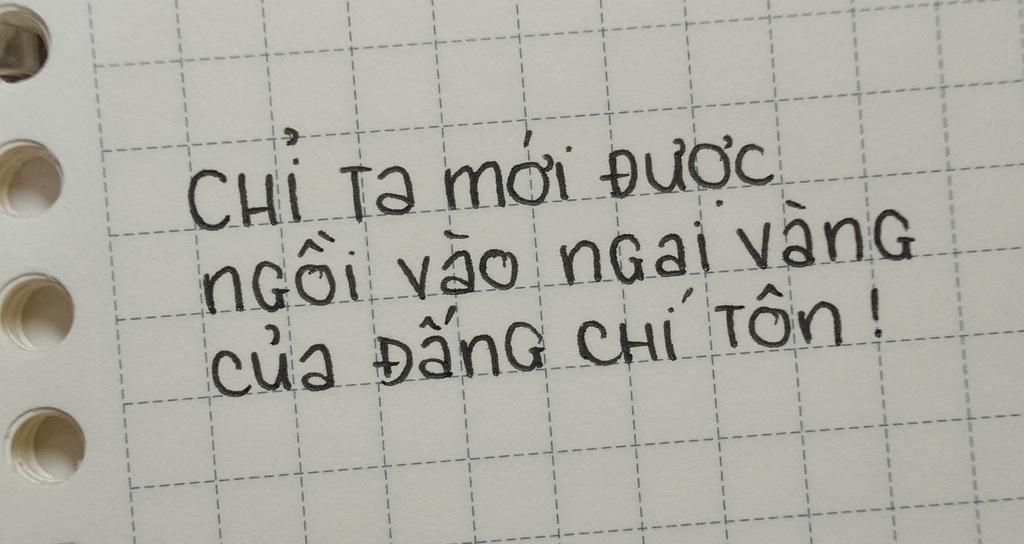 CHỈ Ta mới ĐƯỢC
nGồi vào nGai vànG
của ĐấnG CHÍ Tôn!